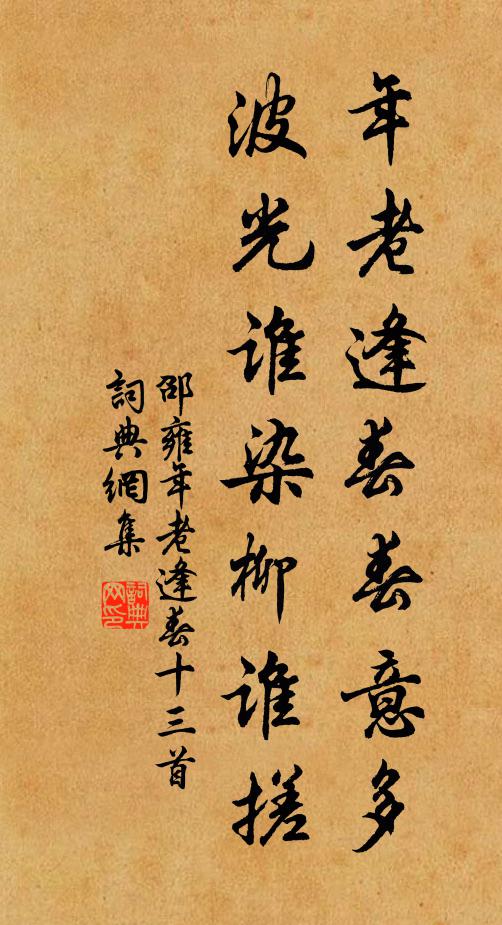 年老逢春春意多
波光谁染柳谁搓
邵雍年老逢春十三首
詞典網集
詞典網印